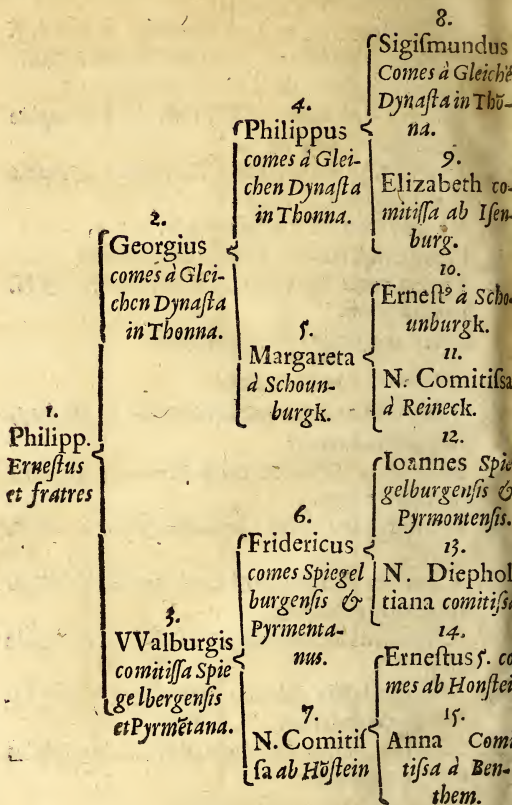 1.
Philipp.
Erneſtus
et fratres
2.
Georgius
comes à Glei-
chen Dynaſta
in Thonna.
3.
VValburgis
comitiſſa Spie
ge lbergenſis
et Pyrmẽtana.
4.
Philippus
comes à Glei-
chen Dynaſta
in Thonna.
5.
Margareta
à Schoun-
burgk.
6.
Fridericus
comes Spiegel
burgenſis &
Pyrmenta-
nus.
7.
N. Comitiſ
ſa ab Hõſtein
8.
Sigiſmundus
Comes à Gleichẽ
Dynaſta in Thõ-
na.
9.
Elizabeth co-
mitiſſa ab Iſen-
burg.
10.
Erneſtꝰ à Scho-
unburgk.
11.
N. Comitiſſa
à Reineck.
12.
Ioannes Spie
gelburgenſis &
Pyrmontenſis.
13.
N. Diephol
tiana comitiſſa
14.
Erneſtus 5. co
mes ab Honſtein
15.
Anna Comi
tiſſa à Ben-
them.